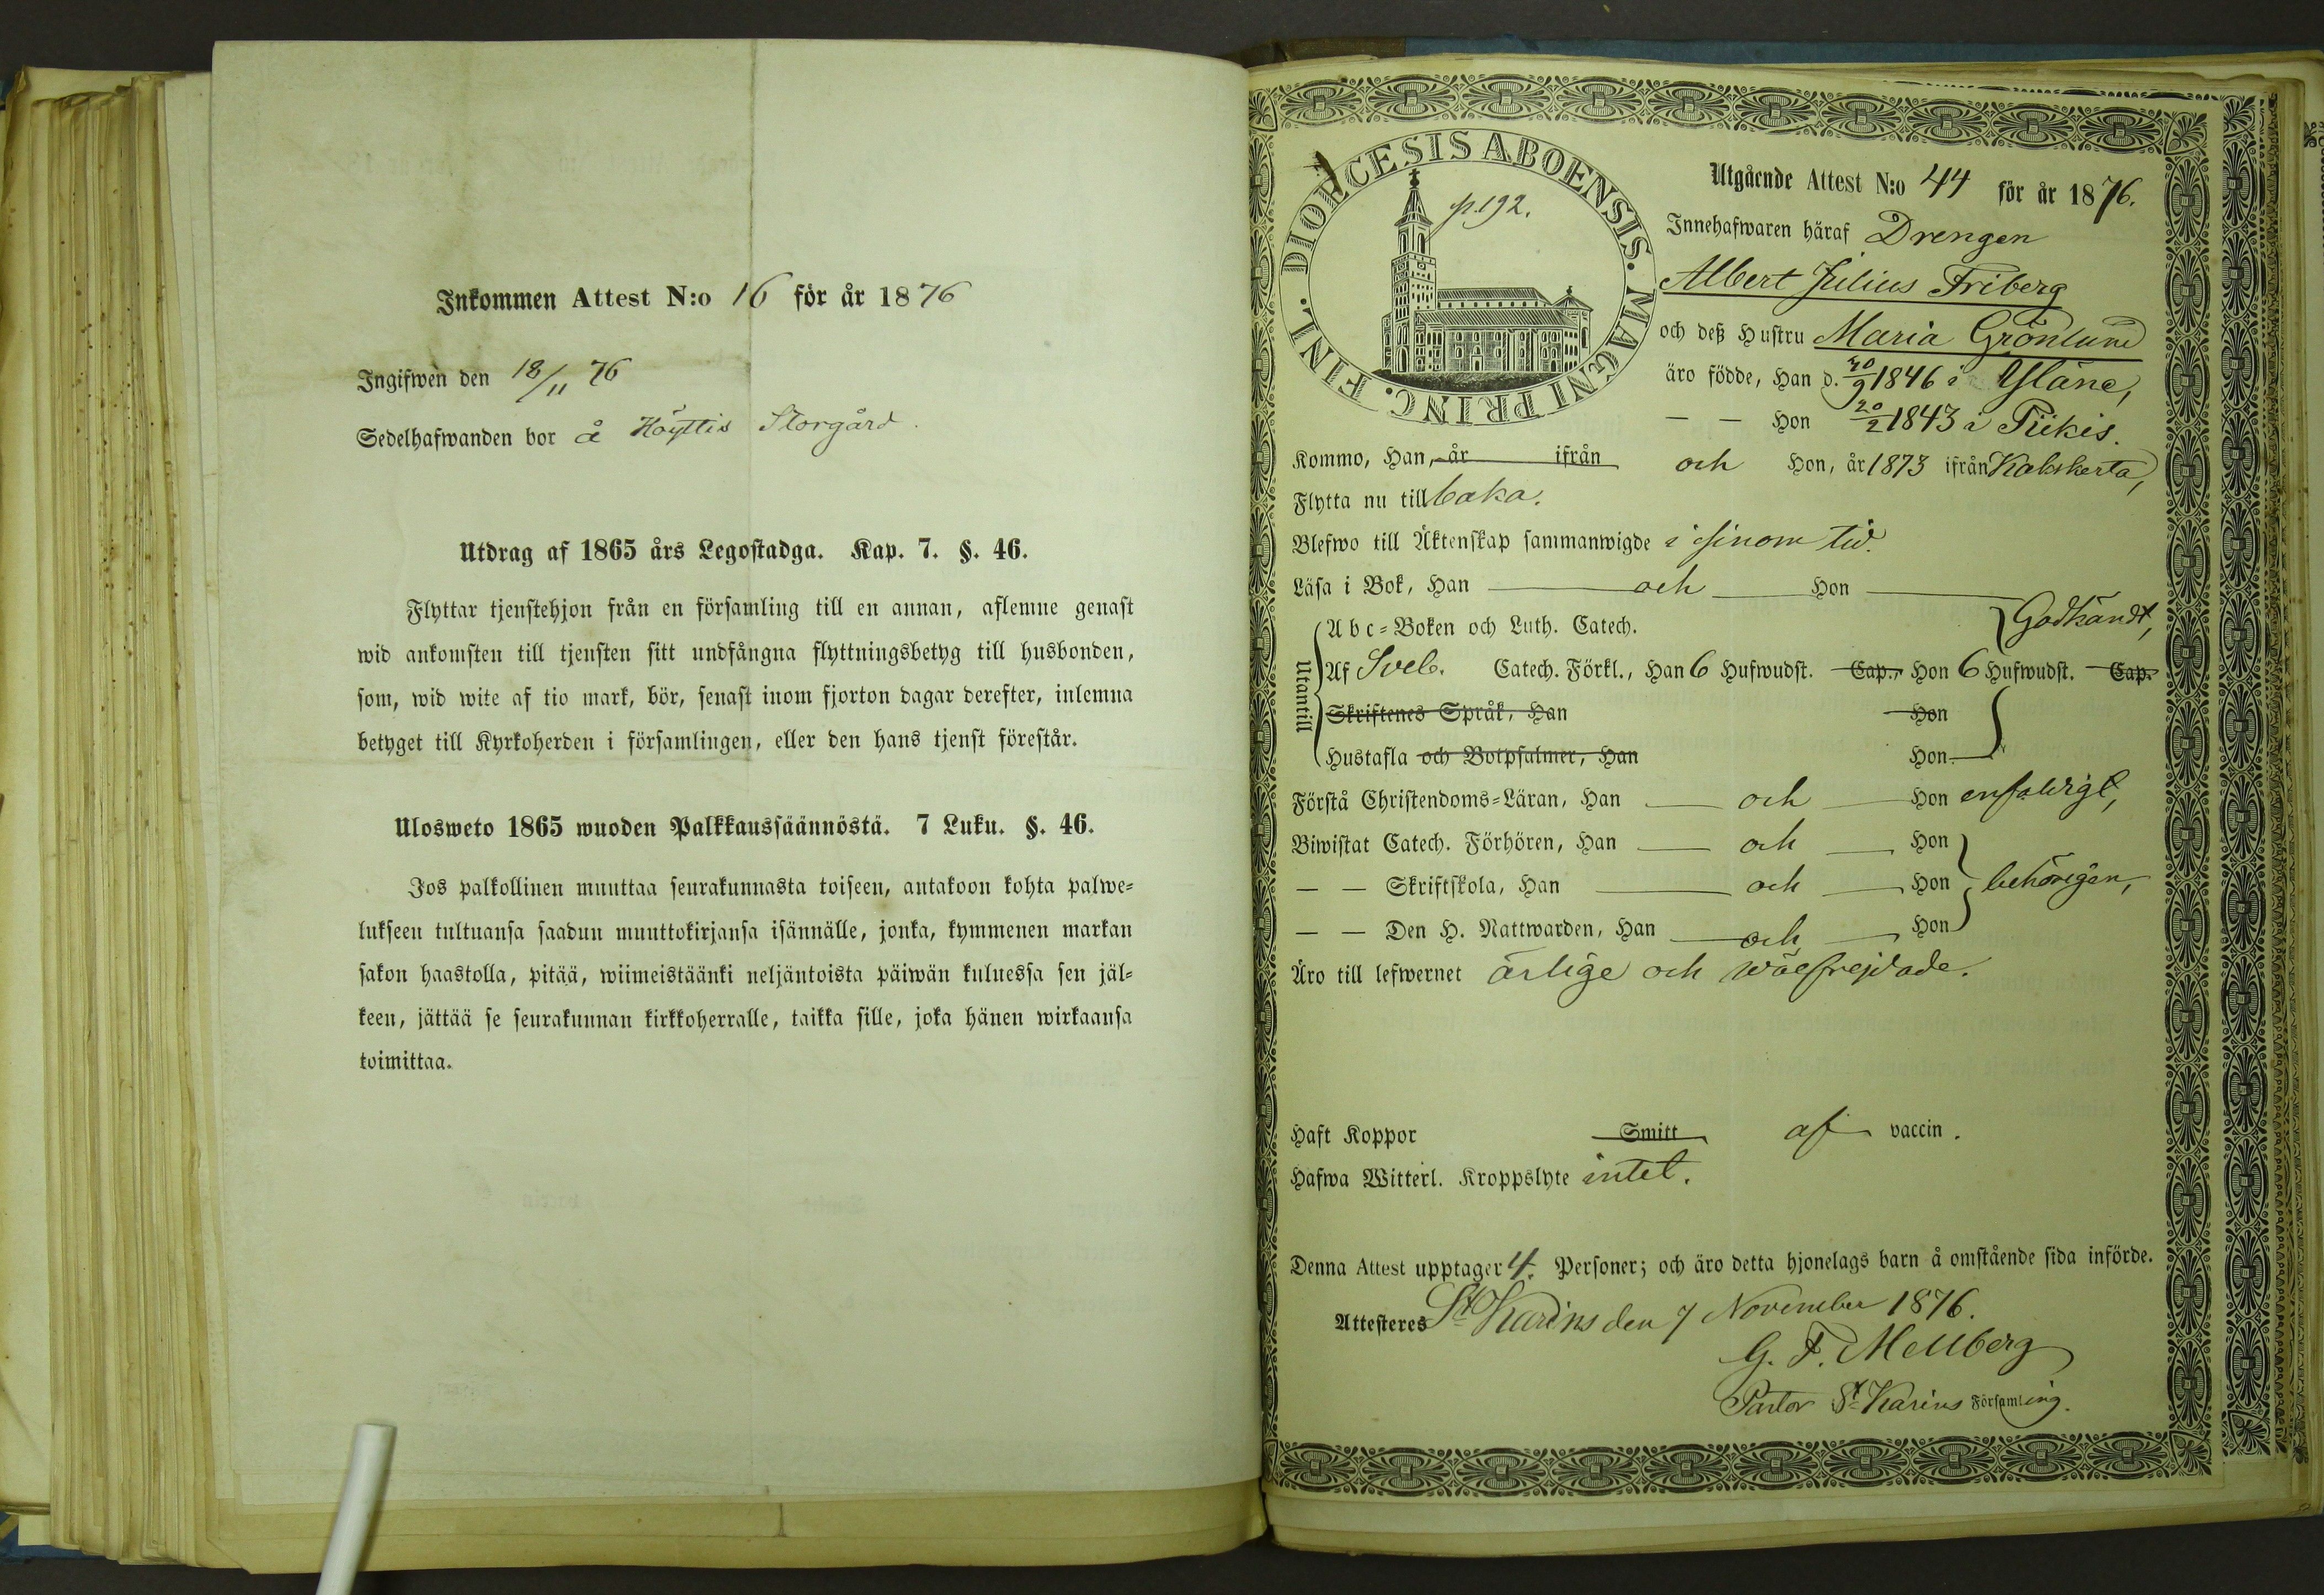 Inkommen Attest N:o 16 för år 1876
Ingifwen den 18/11 76
Sedelhafwanden bor å Höyttis Storgård.
Utdrag af 1865 års Legostadga. Kap. 7. §. 46.
Flyttar tjenstehjon från en församling till en annan, aflemne genast
wid ankomsten till tjensten sitt undfångna flyttningsbetyg till husbonden,
som, wid wite af tio mark, bör, senast inom fjorton dagar derefter, inlemna
betyget till Kyrkoherden i församlingen, eller den hans tjenst förestår.
Ulosweto 1865 wuoden Palkkaussäännöstä. 7 Luku. §. 46.
Jos palkollinen muuttaa seurakunnasta toiseen, antakoon kohta palwe=
lukseen tultuansa saadun muuttokirjansa isännälle, jonka, kymmenen markan
sakon haastolla, pitää, wiimeistäänki neljäntoista päiwän kuluessa sen jäl=
keen, jättää se seurakunnan kirkkoherralle, taikka sille, joka hänen wirkaansa
toimittaa.
DIOECESIS ABOENSIS. MAGNI PRINC. FINL.
p. 192.
Utgående Attest N:o 44 för år 1876.
Innehafwaren häraf Drengen
Albert Julius Friberg
och deß Hustru Maria Grönlund
äro födde, Han d. 20/9 1846 i Yläne,
— — Hon 20/2 1843 i Piikis.
Kommo, Han, år ifrån och Hon, år 1873 ifrån Kakskerta,
Flytta nu till baka.
Blefwo till Äktenskap sammanwigde i sinom tid.
Läsa i Bok, Han — och — Hon —
Utantill
Abc=Boken och Luth. Catech. Godkändt,
Af Sveb. Catech. Förkl., Han 6 Hufwudst. Cap., Hon 6 Hufwudst. Cap.
Skriftenes Språk, Han Hon
Hustafla och Botpsalmer, Han Hon
Förstå Christendoms=Läran, Han — och — Hon enfaldigt,
Biwistat Catech. Förhören, Han — och — Hon
— — Skriftskola, Han — och — Hon behörigen,
— — Den H. Nattwarden, Han — och — Hon
Äro till lefwernet ärlige och wälfrejdade.
Haft Koppor Smitt af vaccin.
Hafwa Witterl. Kroppslyte intet.
Denna Attest upptager 4. Personer; och äro detta hjonelags barn å omstående sida införde.
Attesteres St Karins den 7 November 1876.
G. F. Mellberg
Pastor St Karins Församling.